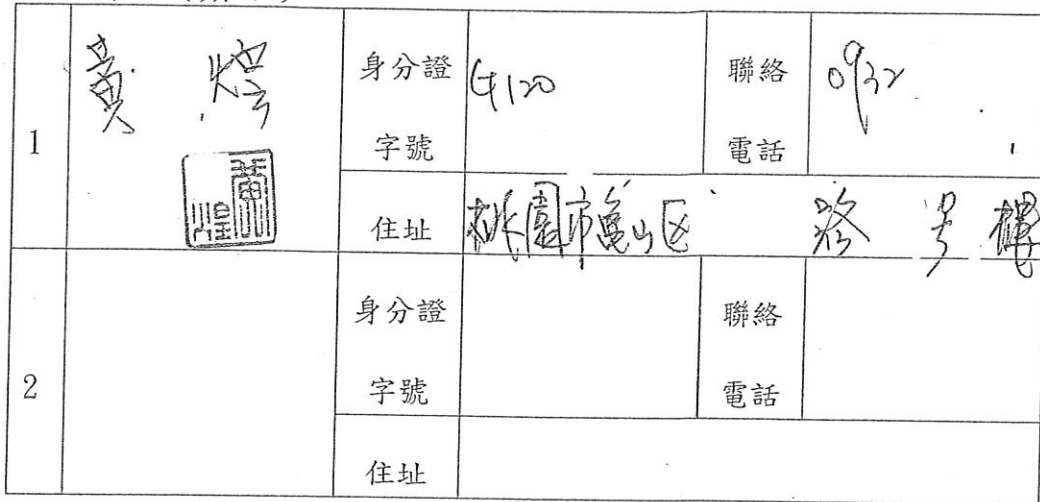 1
黃 煌
身分證
字號
G120
聯絡
電話
0932
住址
桃園市龜山区 路 号 樓
2
身分證
字號
聯絡
電話
住址